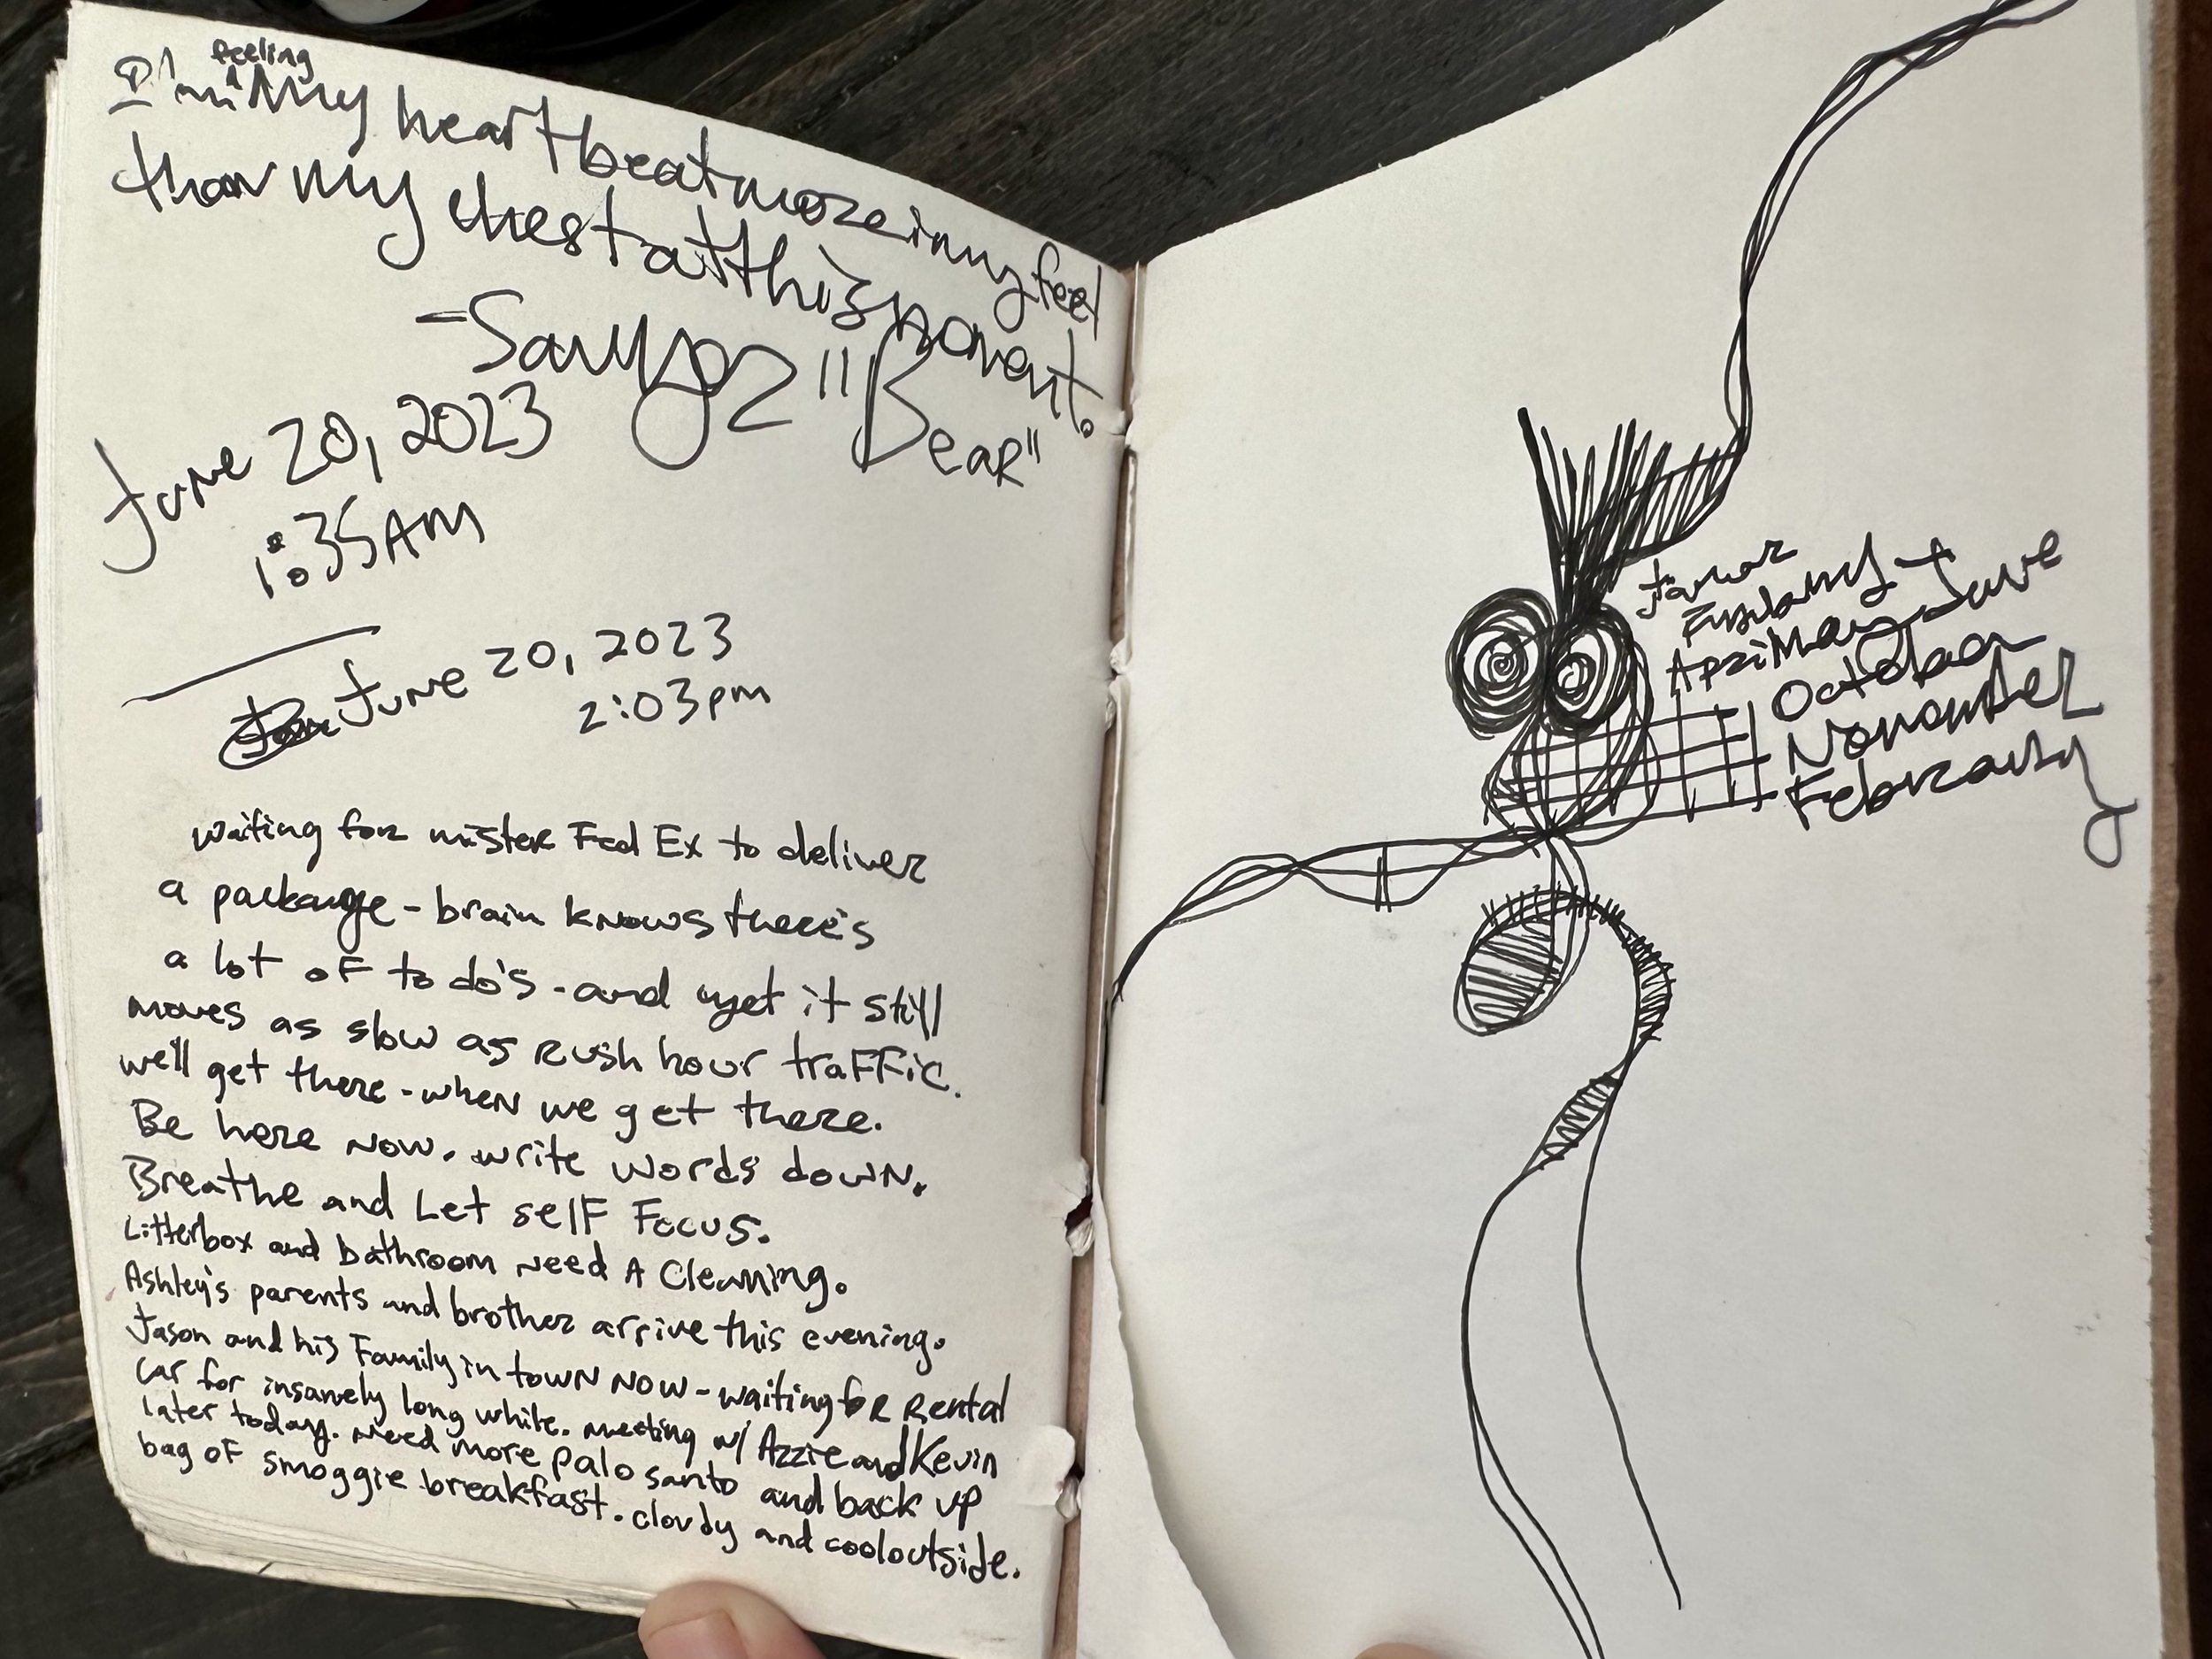 I'm feeling My heart beat more in my feet
than my chest at this moment.
"Bear"
June 20, 2023
1:35AM
June 20, 2023
2:03pm
waiting for mister Fed Ex to deliver
a package - brain knows there's
a lot of to do's - and yet it still
moves as slow as rush hour traffic.
we'll get there - when we get there.
Be here now. write words down.
Breathe and Let self Focus.
Litterbox and bathroom need A Cleaning.
Ashley's parents and brother arrive this evening.
Jason and his Family in town now - waiting for rental
car for insanely long while. meeting w/ Azzie and Kevin
later today. need more palo santo and back up
bag of smoggie breakfast. cloudy and cool outside.
October
November
February